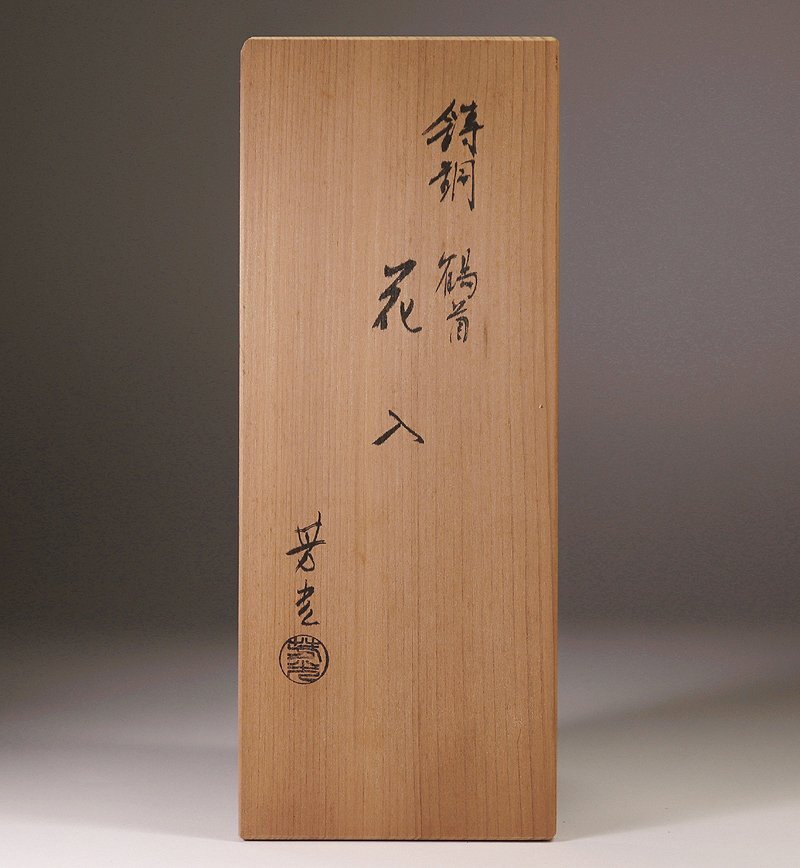 鋳銅
鶴首
花入
芳光
芳光